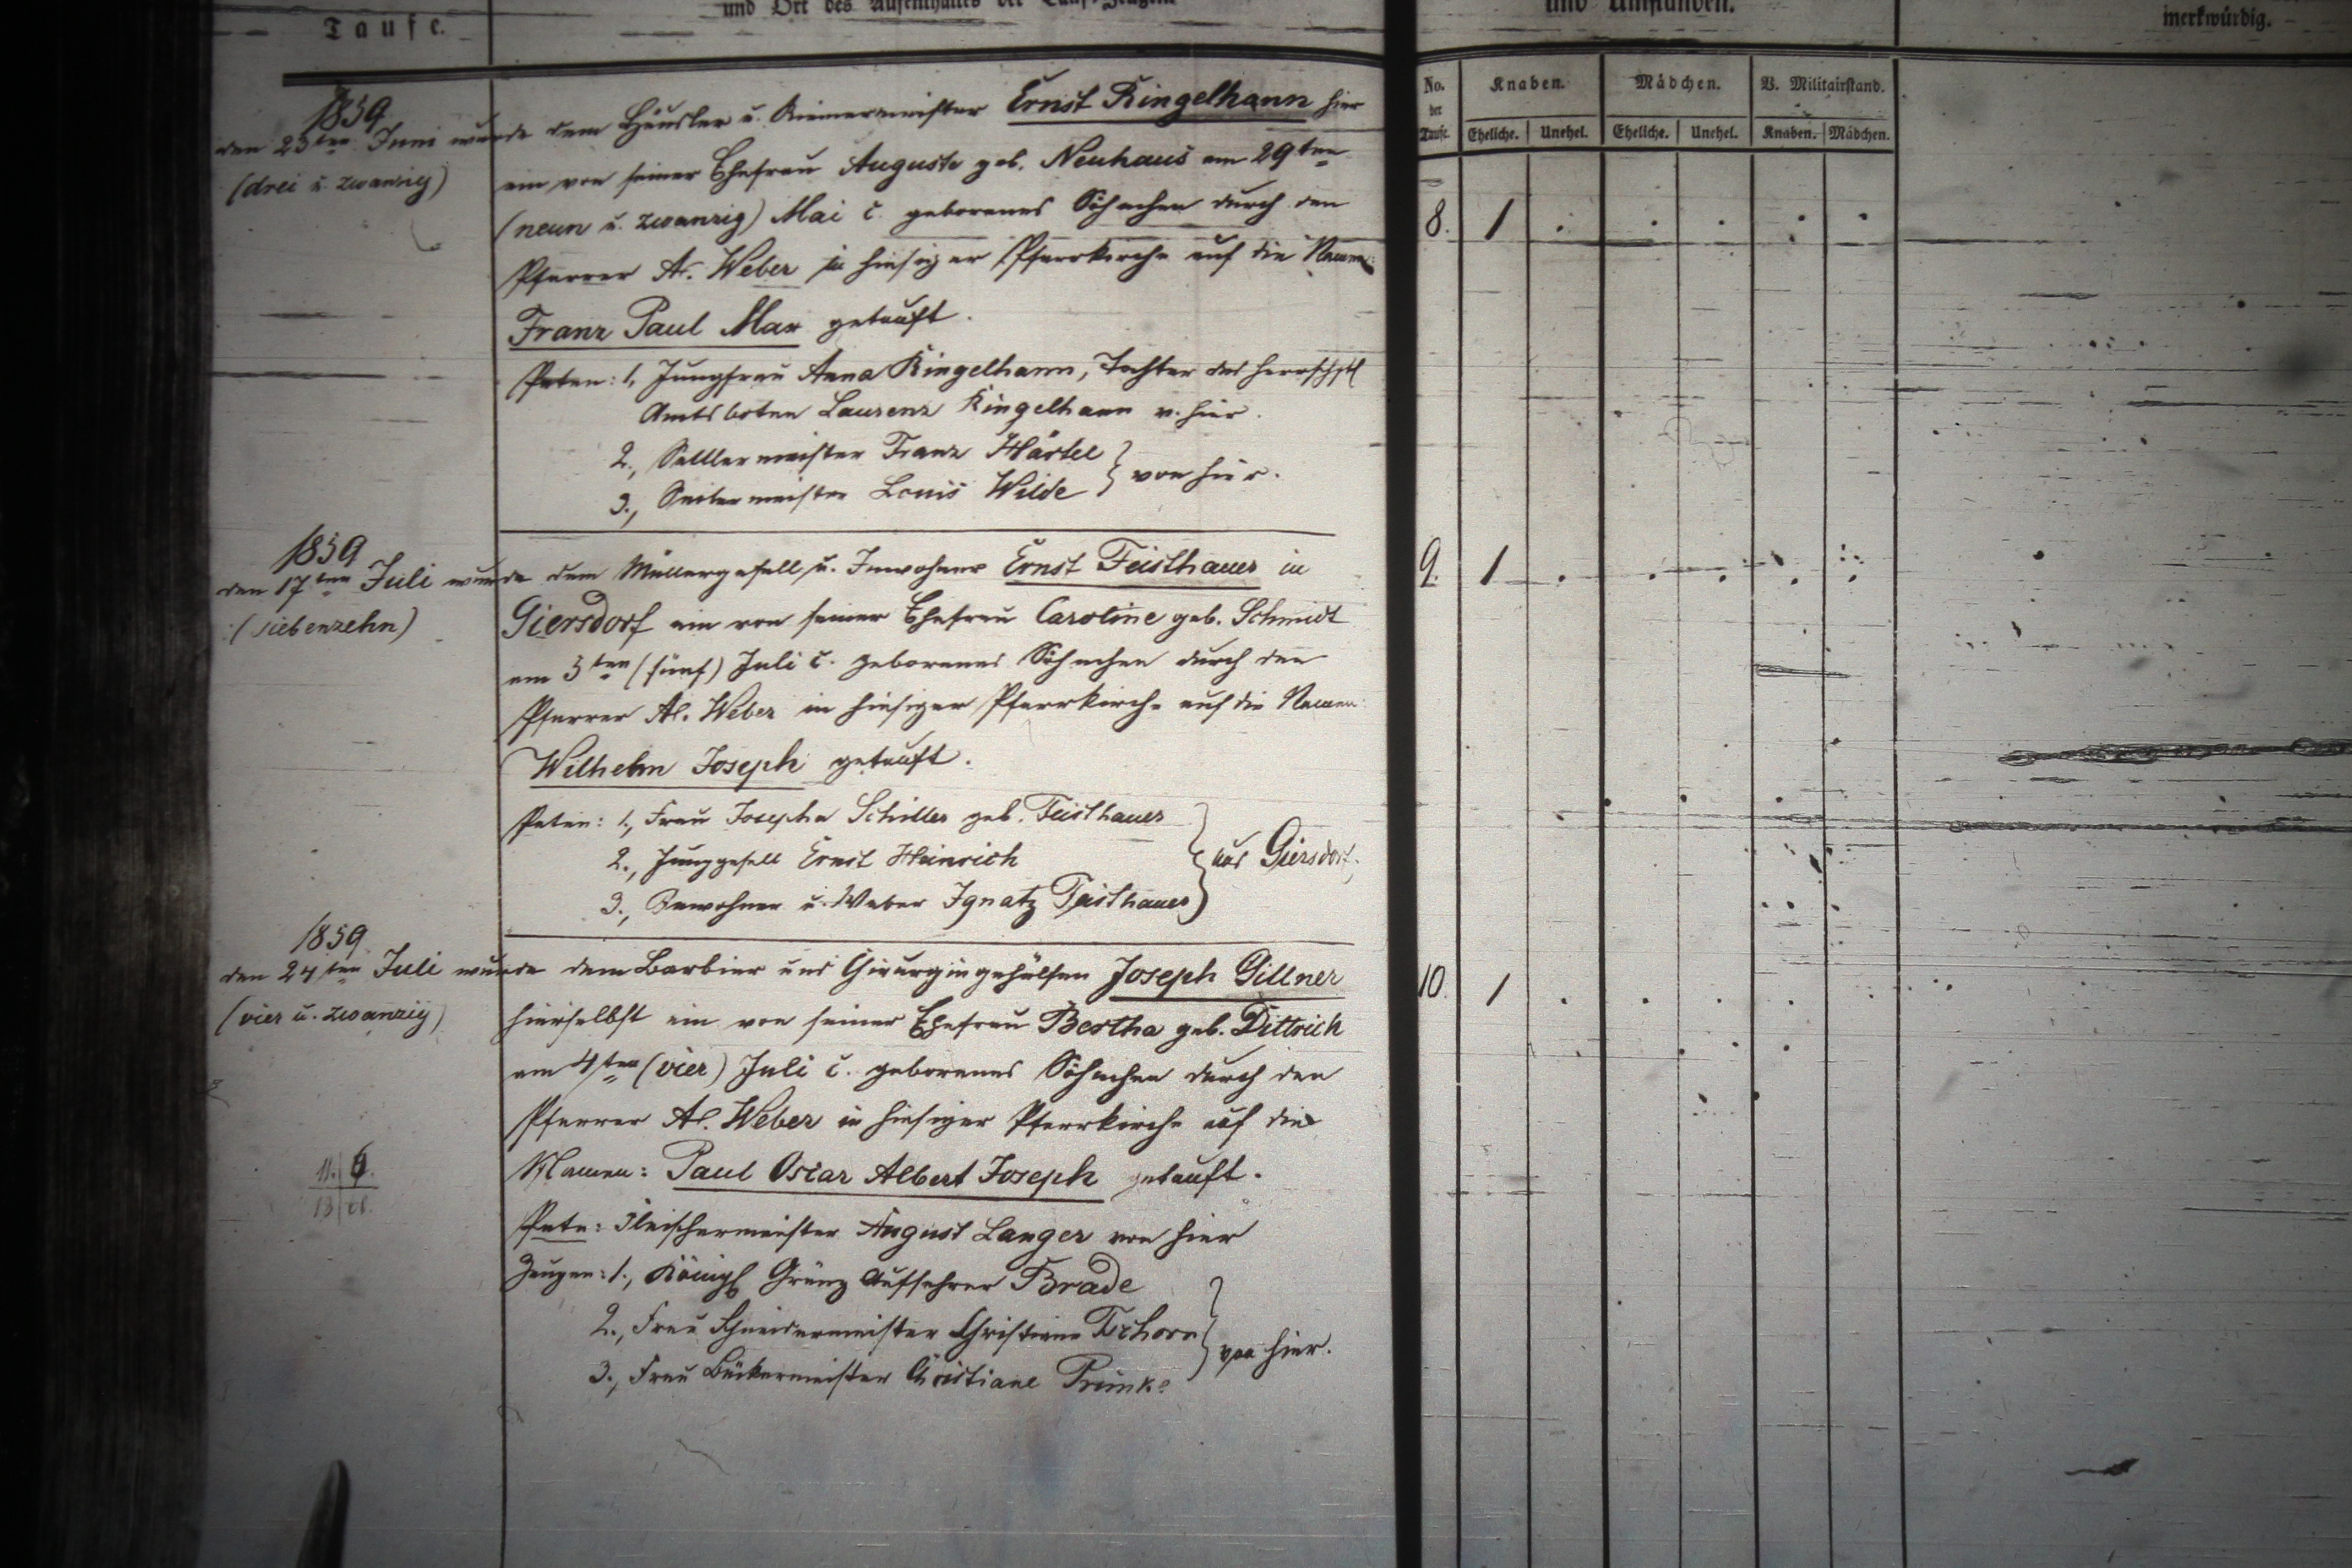 Taufe.
und Ort des Aufenthaltes der Tauf-Zeugen.
und Umständen.
merkwürdig.
No. der Taufe.
Knaben.
Mädchen.
B. Militairstand.
Eheliche.
Unehel.
Eheliche.
Unehel.
Knaben.
Mädchen.
1859
den 23ten Juni wurde dem Häusler u. Riemermeister Ernst Ringelhann hier
(drei u. zwanzig)
ein von seiner Ehefrau Auguste geb. Neuhaus am 29ten
(neun u. zwanzig) Mai c. geborenes Söhnchen durch den
8. 1
Pfarrer Al. Weber in hiesiger Pfarrkirche auf die Namen:
Franz Paul Max getauft.
Paten: 1, Jungfrau Anna Ringelhann, Tochter des herrschftl
Amtsboten Laurenz Ringelhann v. hier.
2., Sattlermeister Franz Härtel
3., Seilermeister Louis Wilde } von hier.
1859
den 17ten Juli wurde dem Müllergesell u. Inwohner Ernst Feisthauer in
9. 1
(siebenzehn)
Giersdorf ein von seiner Ehefrau Caroline geb. Schmidt
am 5ten (fünf) Juli c. geborenes Söhnchen durch den
Pfarrer Al. Weber in hiesiger Pfarrkirche auf die Namen:
Wilhelm Joseph getauft.
Paten: 1., Frau Josepha Schiller geb. Feisthauer
2., Junggesell Ernst Heinrich } aus Giersdorf.
3., Inwohner u. Weber Ignatz Feisthauer
1859
den 24ten Juli wurde dem Barbier und Chirurgingehülfen Joseph Gillner
10. 1
(vier u. zwanzig)
hierselbst ein von seiner Ehefrau Bertha geb. Dittrich
am 4ten (vier) Juli c. geborenes Söhnchen durch den
Pfarrer Al. Weber in hiesiger Pfarrkirche auf die
Namen: Paul Oscar Albert Joseph getauft.
Pate: Fleischermeister August Langer von hier
Zeugen: 1., Königl Gränz Aufseher Brade
2., Frau Schneidermeister Christiane
3., Frau Bäckermeister Christiane } von hier.